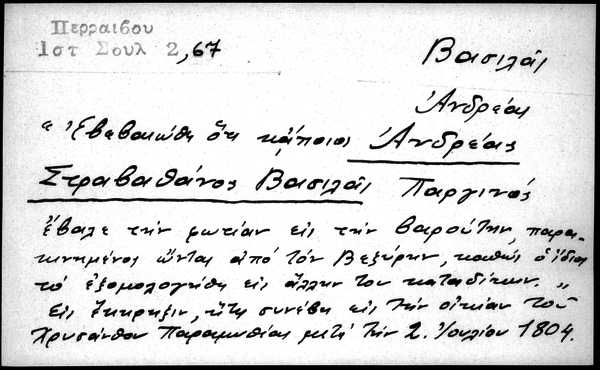 Περραιβου
Ιστ Σουλ 2,67
Βασιλᾶς
Ἀνδρέας
"Ἐβεβαιώθη ὅτι κάποιος Ἀνδρέας
Στραβαθάνος Βασιλᾶς Παργινός
ἔβαλε τήν φωτίαν εἰς τήν βαρούτην, παρα-
κινημένος ὤντας ἀπό τόν Βεζύρην, καθώς ὁ ἴδιος
τό ἐξομολογήθη εἰς ἄλλην του καταδίκην."
Εἰς ἔκρηξιν, ἥτις συνέβη εἰς τήν οἰκίαν τοῦ
Χρυσάνθου Παραμυθίας μετά τήν 2. Ἰουλίου 1804.